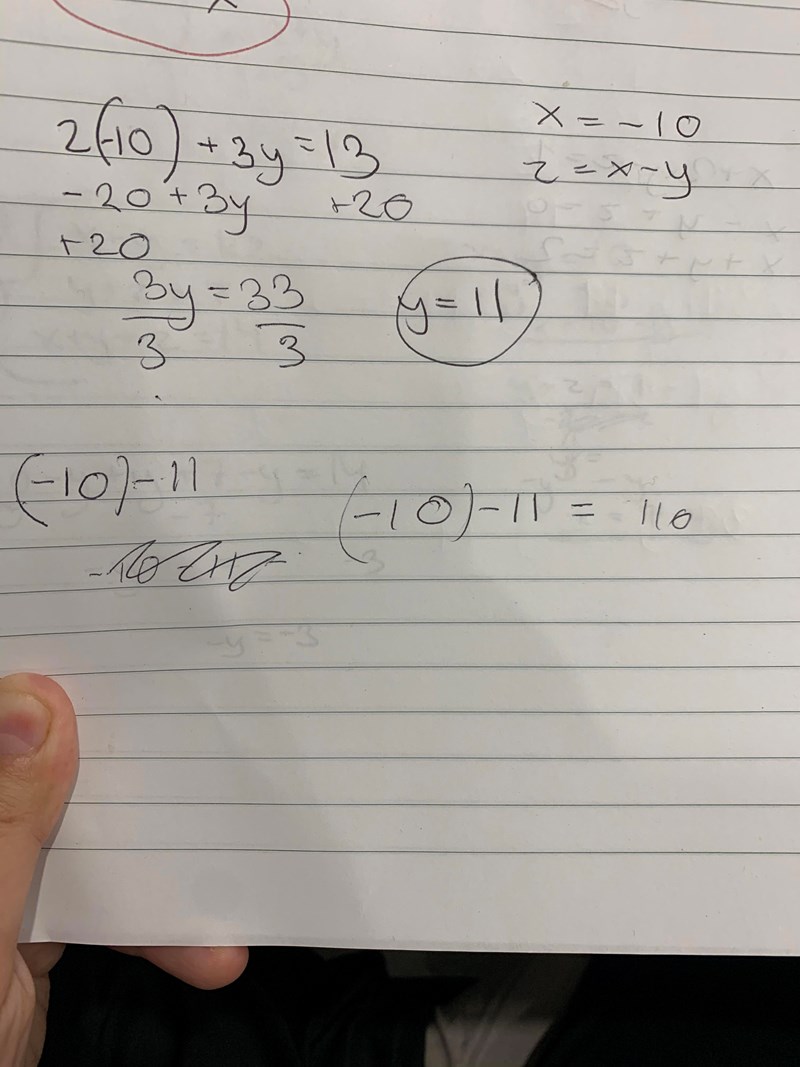 2(-10) + 3y = 13
-20 + 3y +20
+20
3y = 33
3 3
y = 11
x = -10
z = x-y
(-10)-11
(-10)-11 = 110